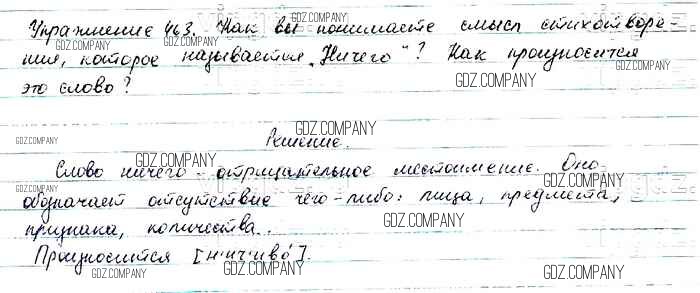 Упражнение 463. Как вы понимаете смысл стихотворе-
GDZ.COMPANY
GDZ.COMPANY
ния, которое называется „Ничего“? Как произносится
GDZ.COMPANY
GDZ.COMPANY
это слово?
GDZ.COMPANY
GDZ.COMPANY
Решение.
GDZ.COMPANY
GDZ.COMPANY
Слово ничего - отрицательное местоимение. Оно
GDZ.COMPANY
GDZ.COMPANY
обозначает отсутствие чего-либо: лица, предмета,
GDZ.COMPANY
признака, количества.
Произносится [н'ич'иво́].
GDZ.COMPANY
GDZ.COMPANY
GDZ.COMPANY